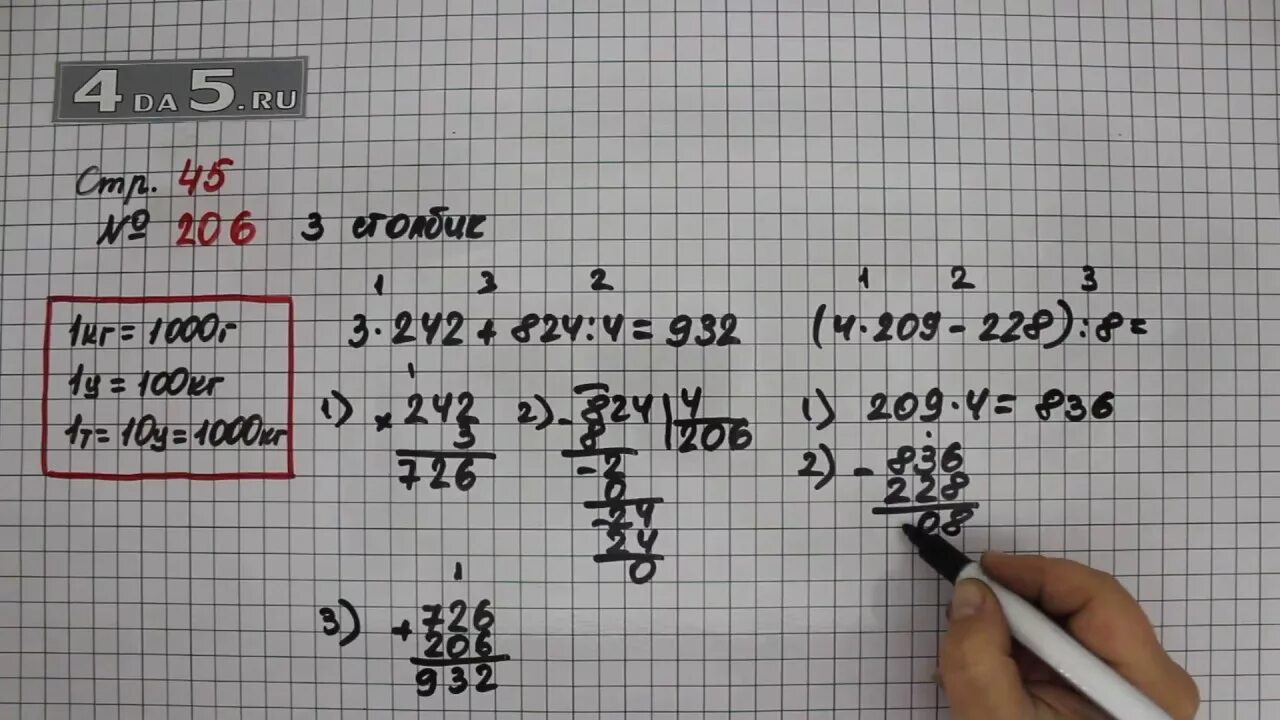 4DA5.RU
Стр. 45
№ 206 3 столбик
1кг = 1000г
1ц = 100кг
1т = 10ц = 1000кг
1 3 2
3·242 + 824:4 = 932
1
1) × 242
3
726
2) - 824 | 4
8 206
- 2
0
- 24
24
0
1
3) + 726
206
932
1 2 3
(4·209 - 228):8=
1) 209·4 = 836
2) - 836
228
08